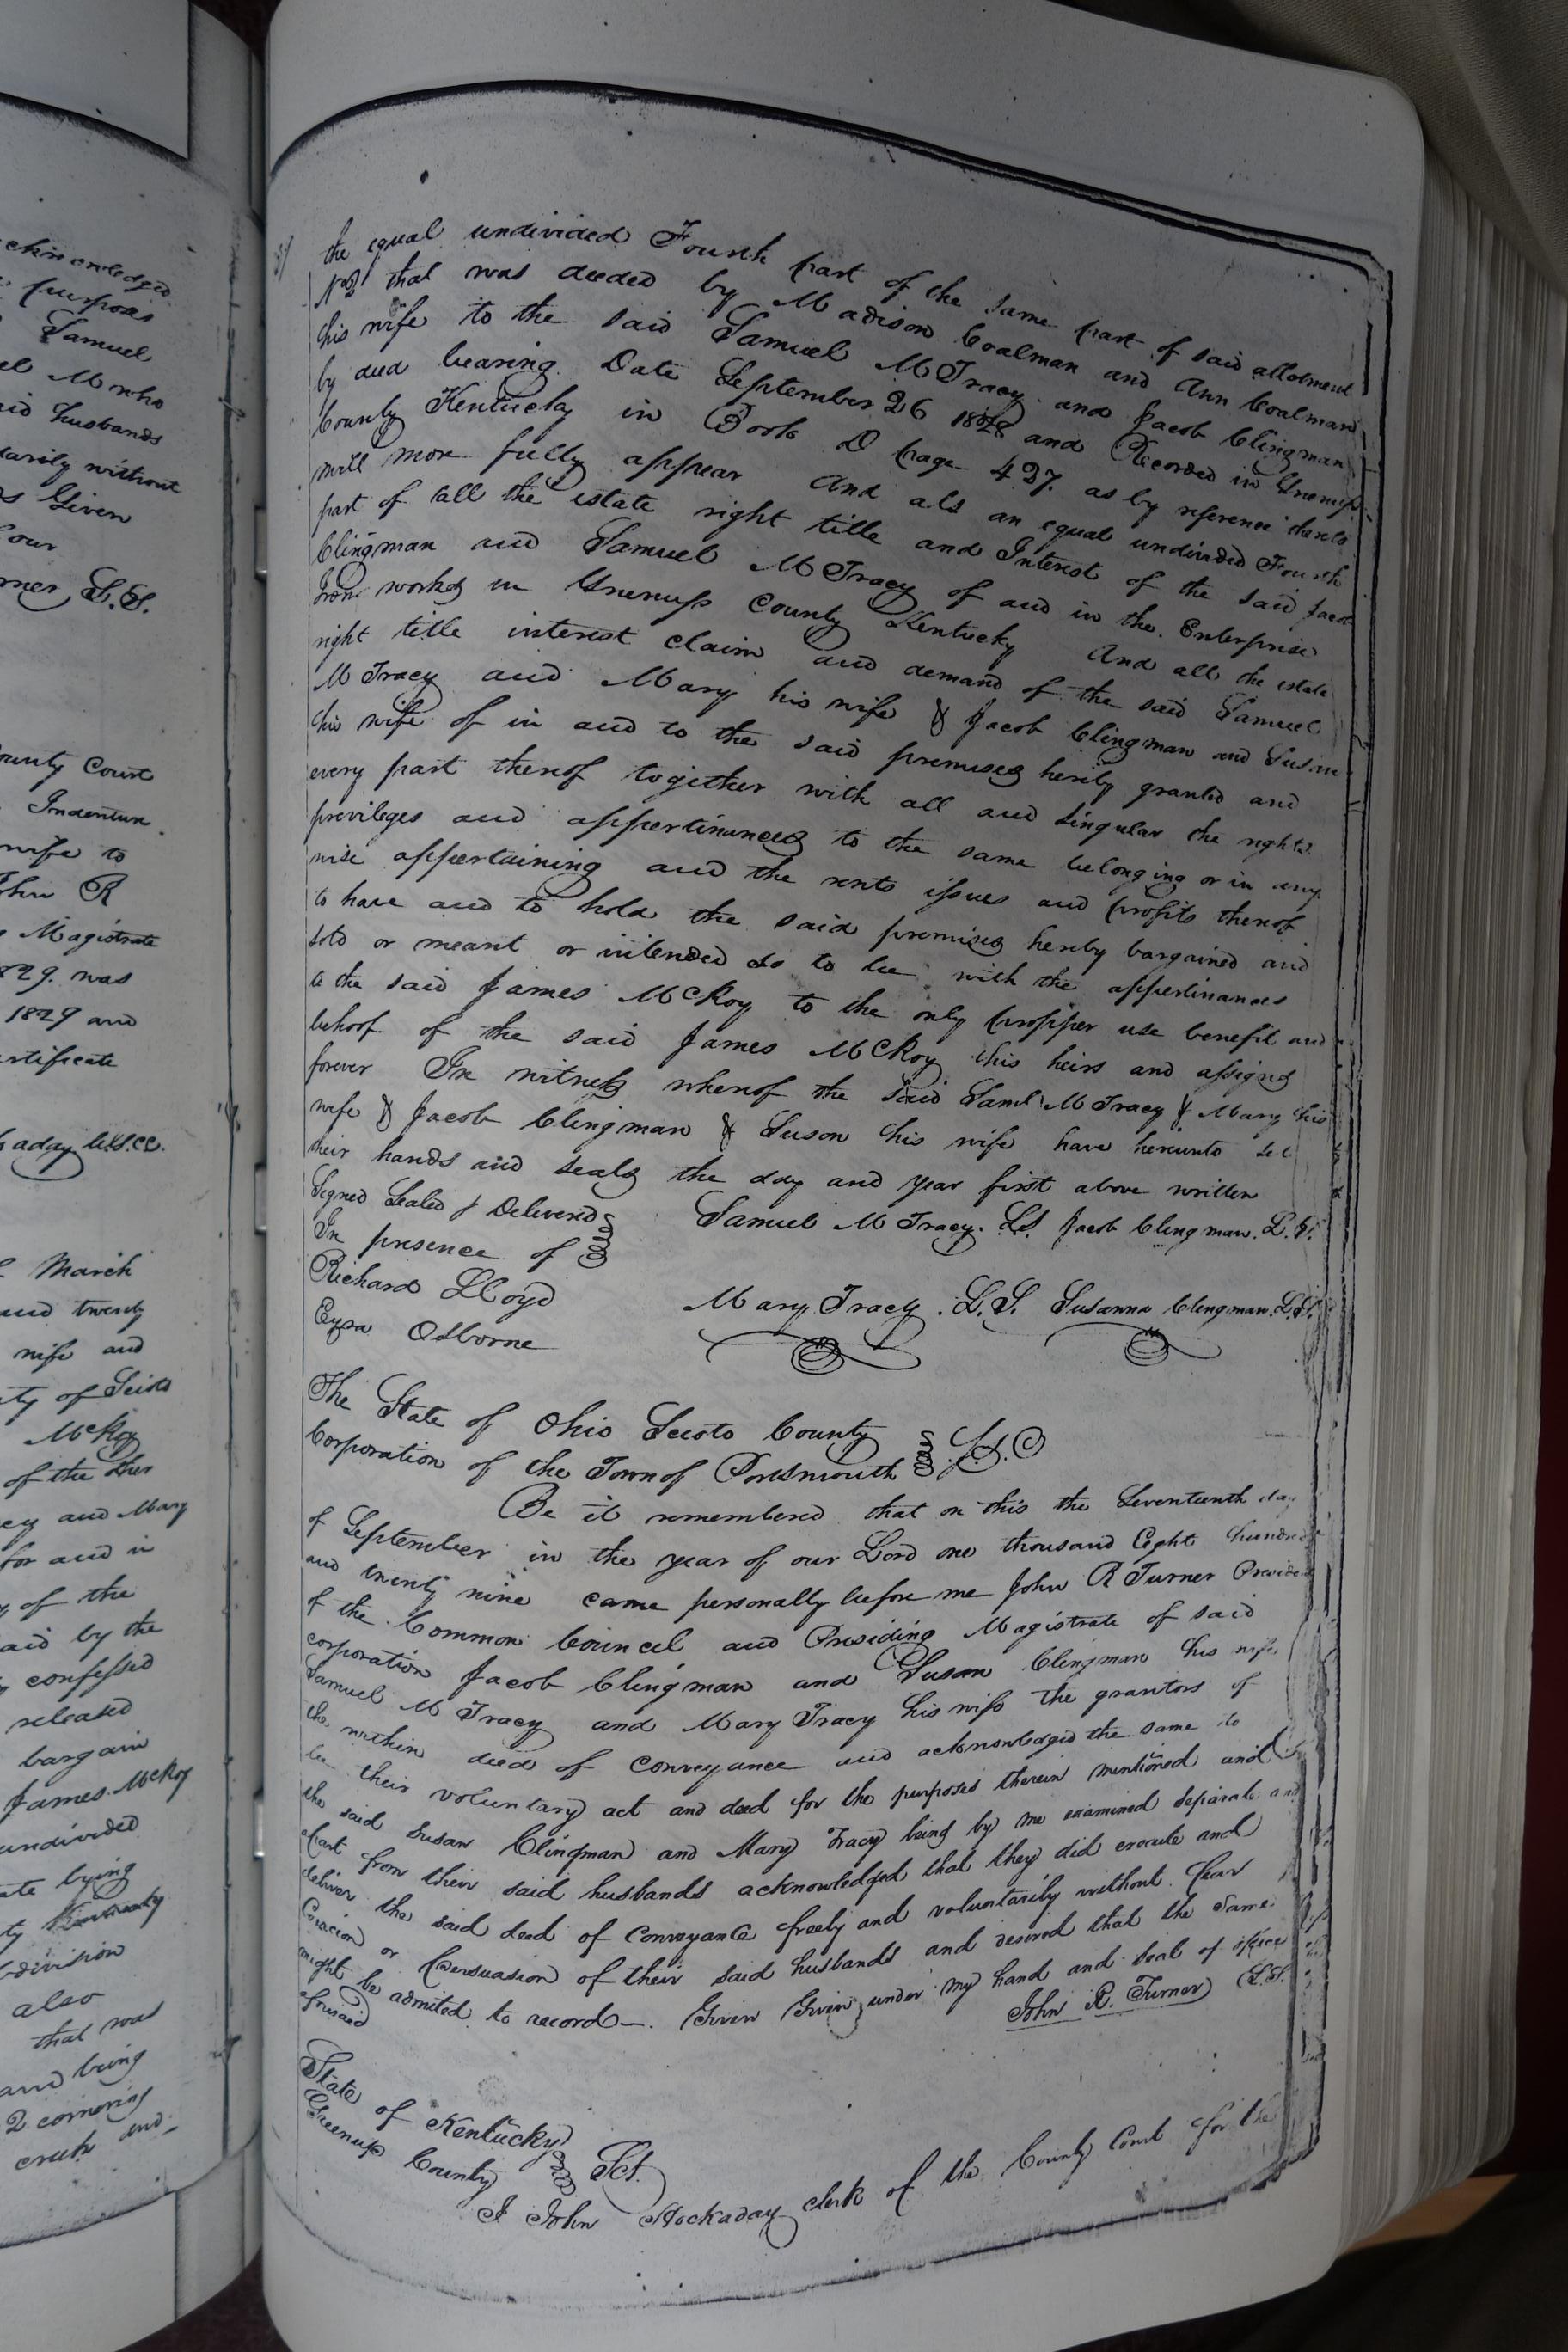 chknowledged
purposes
Samuel
M who
said husbands
without
Given
County Court
Indenture
wife to
John R
Magistrate
1829. was
1829 and
certificate
March
and twenty
wife and
of Scioto
McKoy
of the other
and Mary
for and in
of the
said by the
confessed
released
bargain
James McKoy
undivided
being
Kentucky
division
also
that was
and being
2 cornering
the equal undivided Fourth part of the same part of said allotment
No 2 that was deeded by Madison Coalman and Ann Coalman
his wife to the said Samuel M Tracy and Jacob Clingman
by deed bearing Date September 26 1828 and Recorded in Greenup
County Kentucky in Book D page 427. as by reference thereto
will more fully appear And als an equal undivided Fourth
part of all the estate right title and Interest of the said Jacob
Clingman and Samuel M Tracy of and in the Enterprise
Iron works in Greenup County Kentucky And all the estate
right title interest claim and demand of the said Samuel
M Tracy and Mary his wife & Jacob Clingman and Susan
his wife of in and to the said premises hereby granted and
every part thereof together with all and singular the rights
previleges and appertinances to the same belonging or in any
wise appertaining and the rents issues and profits thereof
to have and to hold the said premises hereby bargained and
sold or meant or intended so to be with the appertinances
to the said James McKoy to the only propper use benefit and
behoof of the said James McKoy his heirs and assigns
forever In witness whereof the said Saml M Tracy & Mary his
wife & Jacob Clingman & Suson his wife have hereunto set
their hands and seals the day and year first above written
Segned Sealed & Delivered Samuel M Tracy. LS Jacob Clingman. L.S.
In presence of
Richard LLoyd
Mary Tracy. L.S. Susanna Clingman. L.S.
Ezra Osborne
The State of Ohio Scioto County
Corporation of the Town of Portsmouth
Be it remembered that on this the Seventeenth day
of September in the year of our Lord one thousand Eight hundred
and twenty nine came personally before me John R Turner President
of the Common Councel and Presiding Magistrate of said
corporation Jacob Clingman and Susan Clingman his wife
Samuel M Tracy and Mary Tracy his wife the grantors of
the within deed of conveyance and acknowledged the same to
be their voluntary act and deed for the purposes therein mentioned and
the said Susan Clingman and Mary Tracy being by me examined separate and
apart from their said husbands acknowledged that they did execute and
deliver the said deed of Conveyance freely and voluntarily without fear
Coercion or Persuasion of their said husbands and desired that the same
might be admited to record—. Given Given under my hand and seal of office
aforesaid John R. Turner L.S.
State of Kentucky
Greenup County Sct.
I John Hockaday clerk of the County Court for the